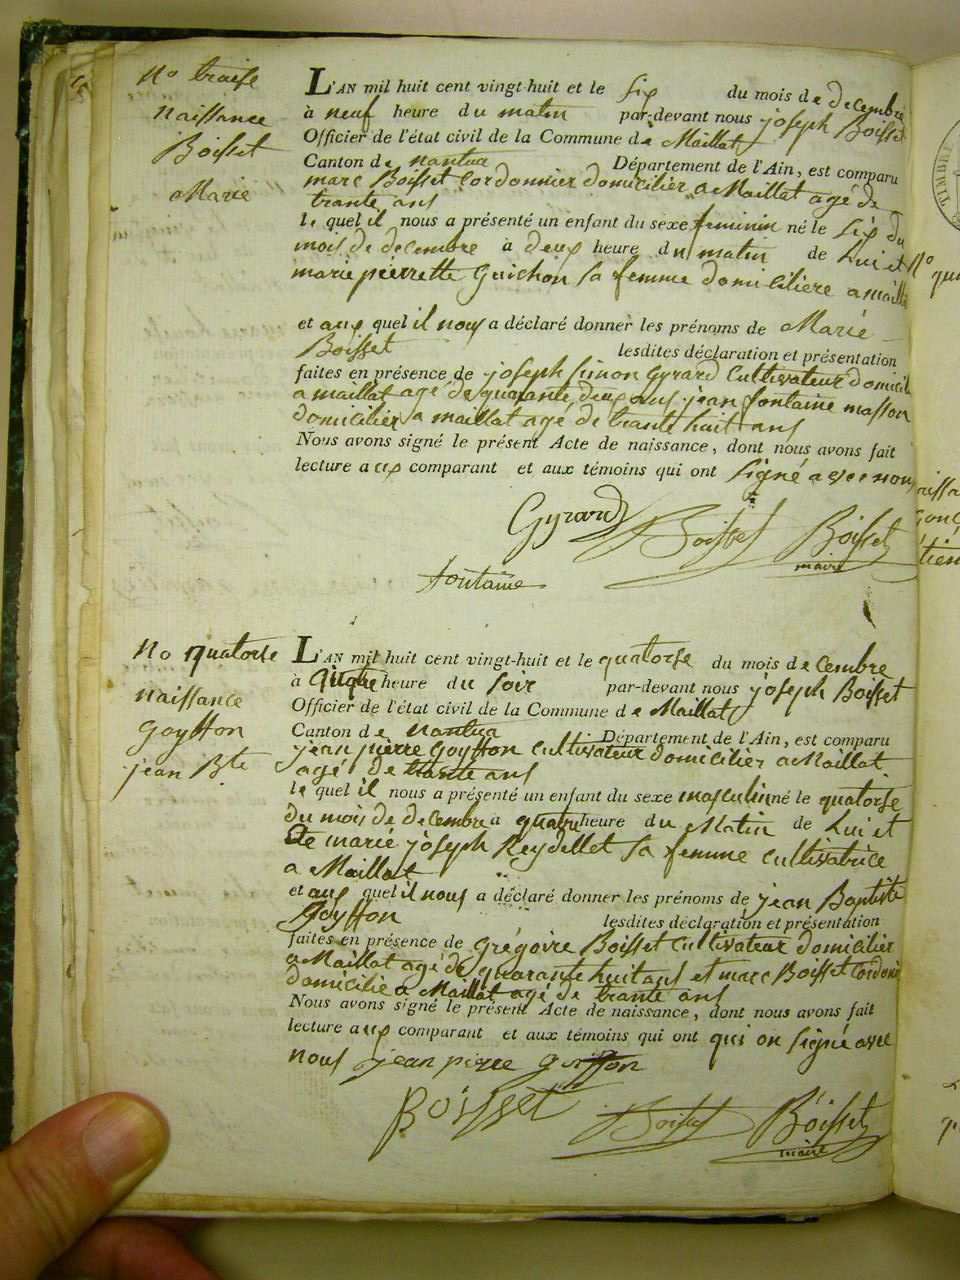 No traise
naissance
Boisset
Marie
L'AN mil huit cent vingt-huit et le six du mois de decembre
à neuf heure du matin par-devant nous joseph Boisset
Officier de l'état civil de la Commune de Maillat
Canton de nantua Département de l'Ain, est comparu
marc Boisset Cordonnier domicilier a Maillat agé de
trante ans
le quel il nous a présenté un enfant du sexe feminin né le six du
mois de decembre à deux heure du matin de Lui et
marie pierrette Guichon sa femme domiciliere a maillat
et aux quel il nous a déclaré donner les prénoms de Marié
Boisset lesdites déclaration et présentation
faites en présence de joseph simon Gyrard Cultivateur domicil
a maillat agé de quarante deux ans jean fontaine masson
domicilier a maillat agé de trante huit ans
Nous avons signé le présent Acte de naissance, dont nous avons fait
lecture aux comparant et aux témoins qui ont signé avec nous
Gyrard Boisset Boisset
maire
fontaine
No quatorse
naissance
goyffon
jean Bte
L'AN mil huit cent vingt-huit et le quatorse du mois de cembre
à heure du soir par-devant nous joseph Boisset
Officier de l'état civil de la Commune de Maillat
Canton de nantua Département de l'Ain, est comparu
jean pierre Goyffon Cultivateur domicilier a Maillat
agé de trante ans
le quel il nous a présenté un enfant du sexe masculin né le quatorse
du mois de decembre a quatre heure du Matin de Lui et
De marié joseph Reydellet sa femme cultivatrice
a Maillat
et aux quel il nous a déclaré donner les prénoms de jean Baptiste
Goyffon lesdites déclaration et présentation
faites en présence de Grégoire Boisset Cultivateur domicilier
a Maillat agé de quarante huit ans et marc Boisset Cordonie
domicilié a Maillat agé de trante ans
Nous avons signé le présent Acte de naissance, dont nous avons fait
lecture aux comparant et aux témoins qui ont qui on signé avec
nous jean pierre goiffon
Boisset Boisset Boisset
maire
TIMBRE